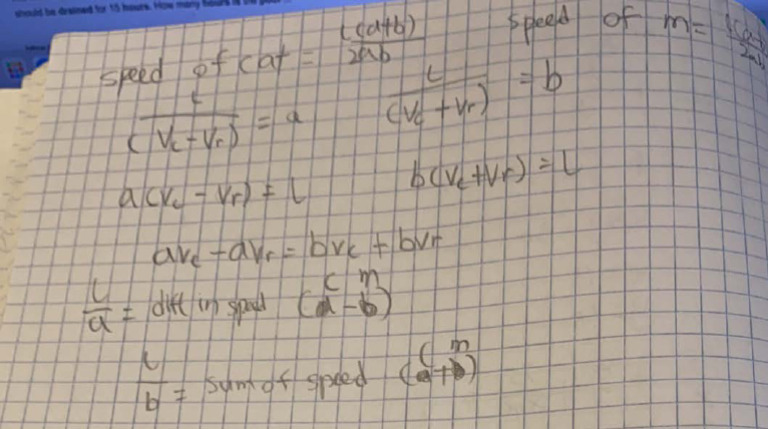 should be drained for 15 hours. How many hours is the
speed of cat = (L(a+b))/2ab speed of m =
L/(Vc - Vr) = a L/(Vc + Vr) = b
a(Vc - Vr) = L b(Vc + Vr) = L
avc - avr = bvc + bvr
c m
L/a = diff in speed (a - b)
c m
L/b = sum of speed (a + b)